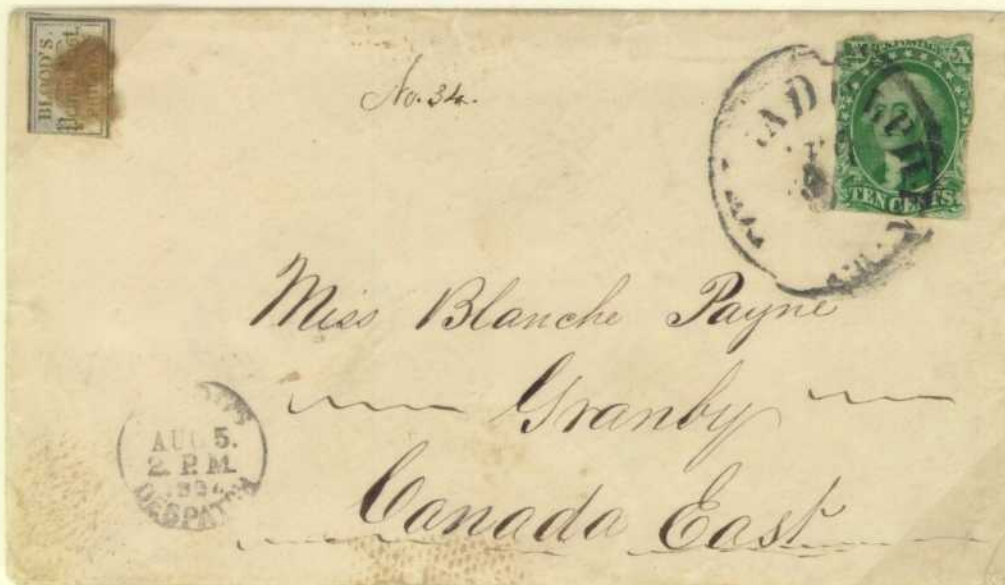 BLOOD'S
No. 34.
U.S. POSTAGE
X
TEN CENTS
Miss Blanche Payne
Granby
Canada East
AUG 5.
2. P.M.
DESPATCH